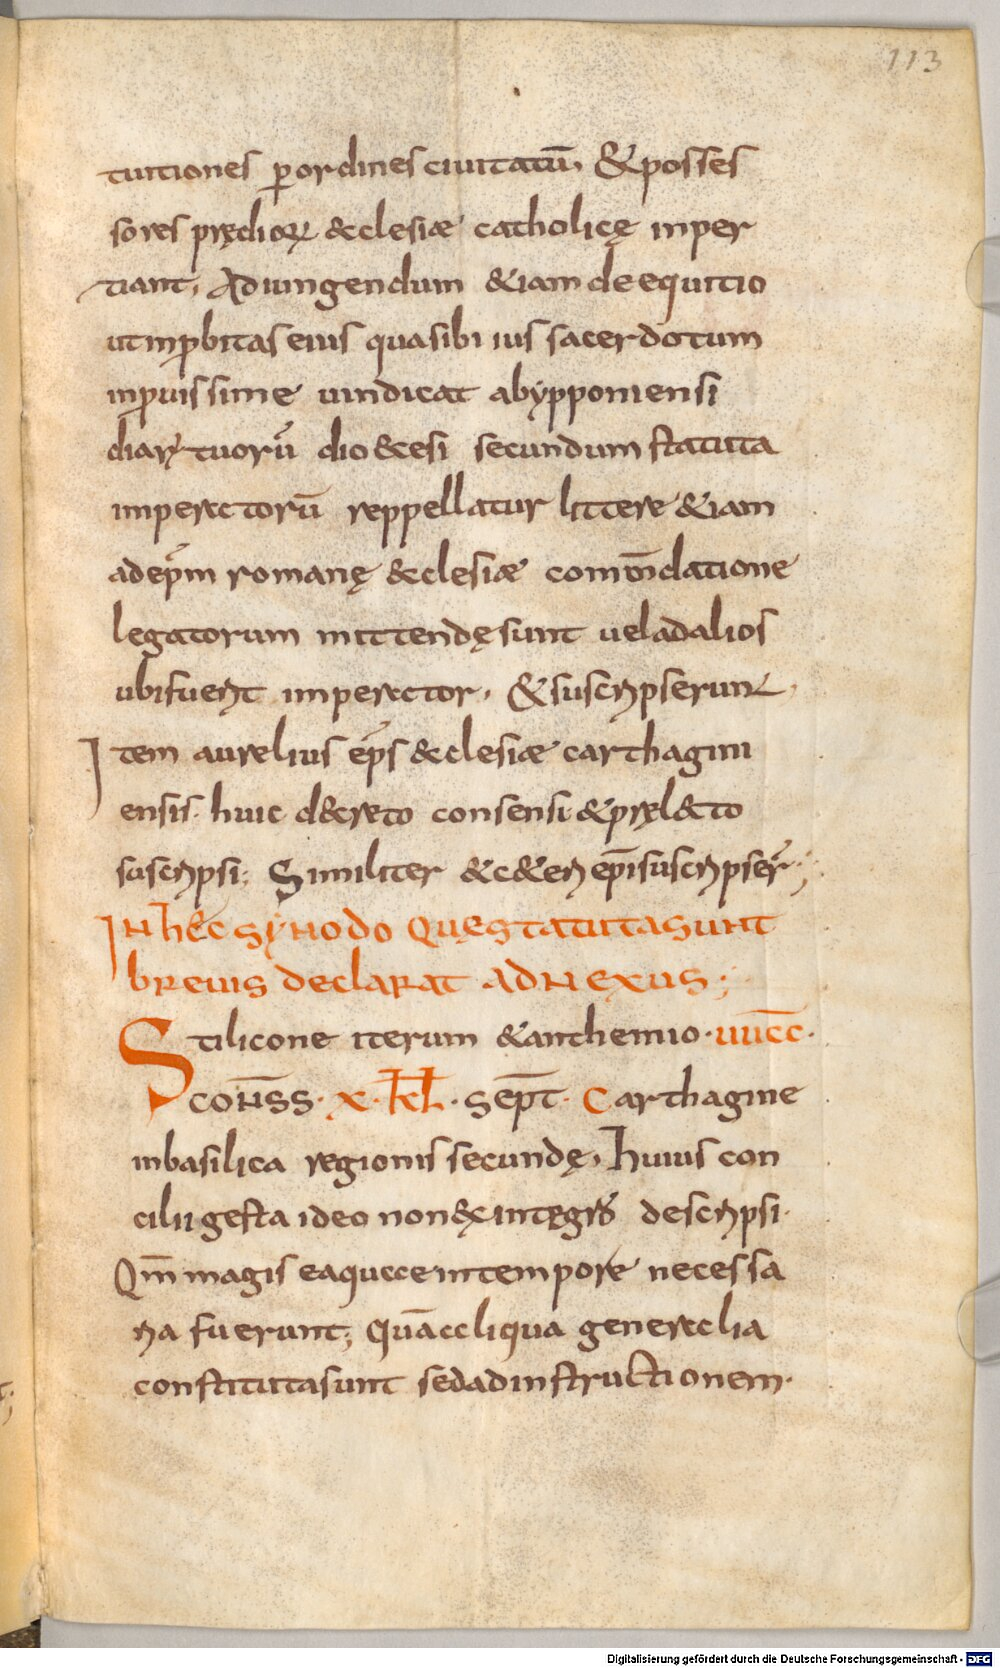 113
tuitiones p̲ordines ciuitatū, &posses
sores prędioꝝ &clesiæ catholicę inper
tiant, Adiungendum &iam de equitio
ut inꝓbitas eius qua sibi ius sacerdotum
inꝓuissime uindicat abypponiensi
diaꝝ tuorū dio&esi secundum statuta
imperatorū reppellatur littere &iam
ad ep̄m romanę &clesiæ com̄ndatione
legatorum mittendę sunt uel ad alios
ubi fuerit imperator, & suscripserunt
Item aurelius ep̄s &clesiæ carthagini
ensis. huic d&creto consensi &pręl&to
suscripsi; Similiter &c&eri ep̄i suscripser̄;
IN hec syNodo quęstatuta sunt
breuis declarat adNexus;
Stilicone iterum &anthemio · uucc̄ ·
coNs̄s · x · kl̄ · sep̄t · Carthagine
in basilica regionis secundę, huius con
cilii gesta ideo non &x integris descripsi.
Qm̄ magis ea quae in tempore necessa
ria fuerunt; quā aliqua generalia
constituta sunt sed ad instructionem.
Digitalisierung gefördert durch die Deutsche Forschungsgemeinschaft - DFG